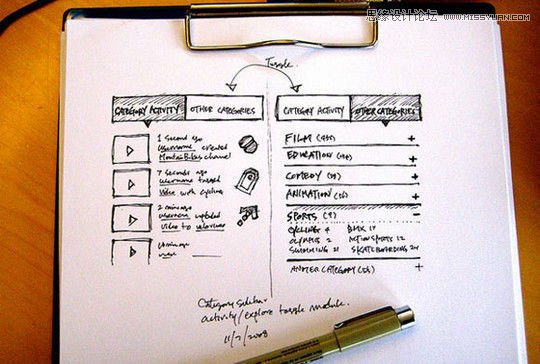 思缘设计论坛 WWW.MISSYUAN.COM
Toggle
CATEGORY ACTIVITY
OTHER CATEGORIES
1 second ago
username created
channel
7 seconds ago
username tagged
video with cycling
2 min ago
username updated
video to
14 min ago
CATEGORY ACTIVITY
OTHER CATEGORIES
FILM
+
EDUCATION
+
COMEDY
+
ANIMATION
+
SPORTS (9)
-
CYCLING 4 BMX 17
OLYMPICS 2 ACTION SPORTS 12
SWIMMING 21 SKATEBOARDING
ANOTHER CATEGORY
+
Category sidebar
activity/explore toggle module.
11/7/2008